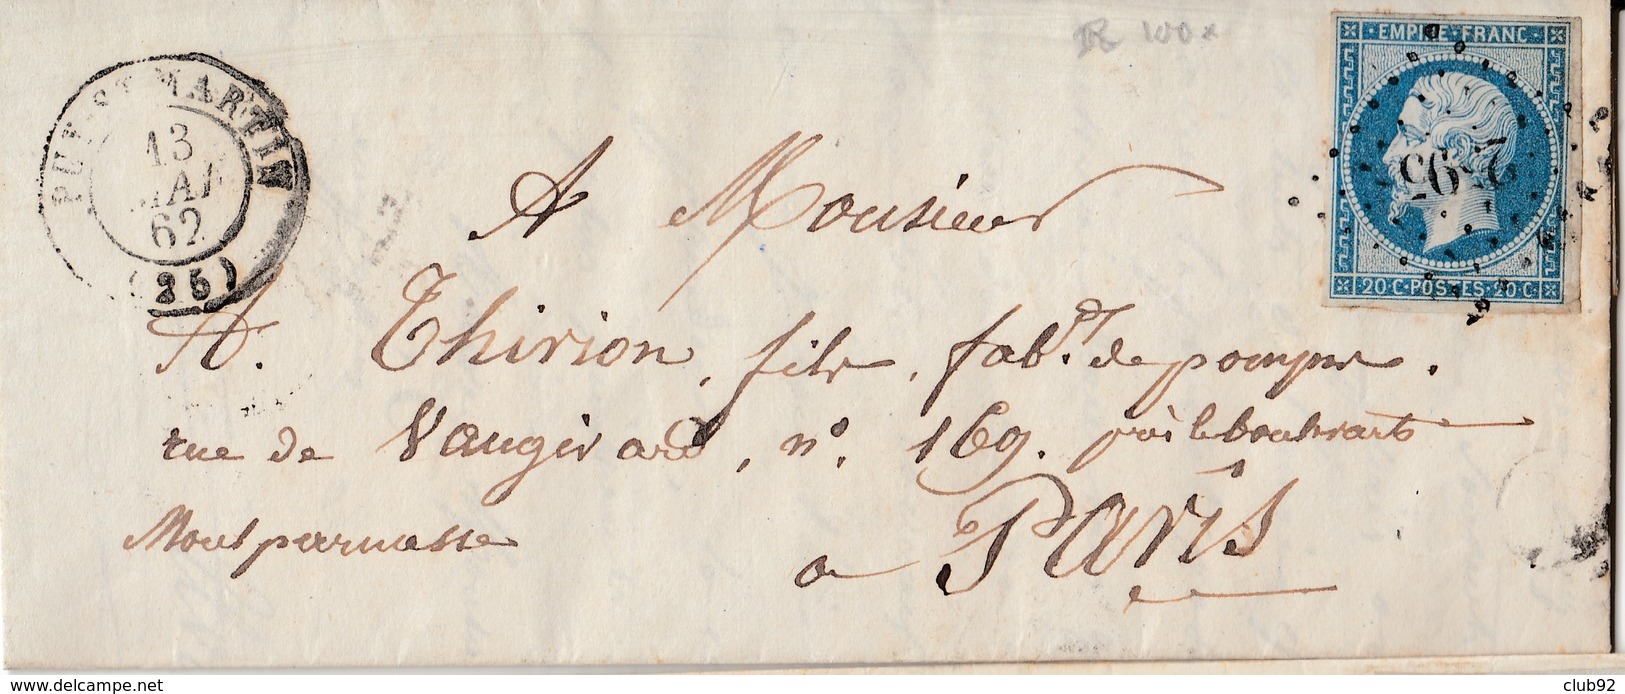 PUY-ST-MARTIN
13
MAI
62
(25)
100 x
EMPIRE FRANC
2695
20 C POSTES 20 C
A Monsieur
A. Thirion, fils, fabt de pompes.
rue de Vaugirard, n° 169. près le boulevart
Montparnasse
a Paris
club92